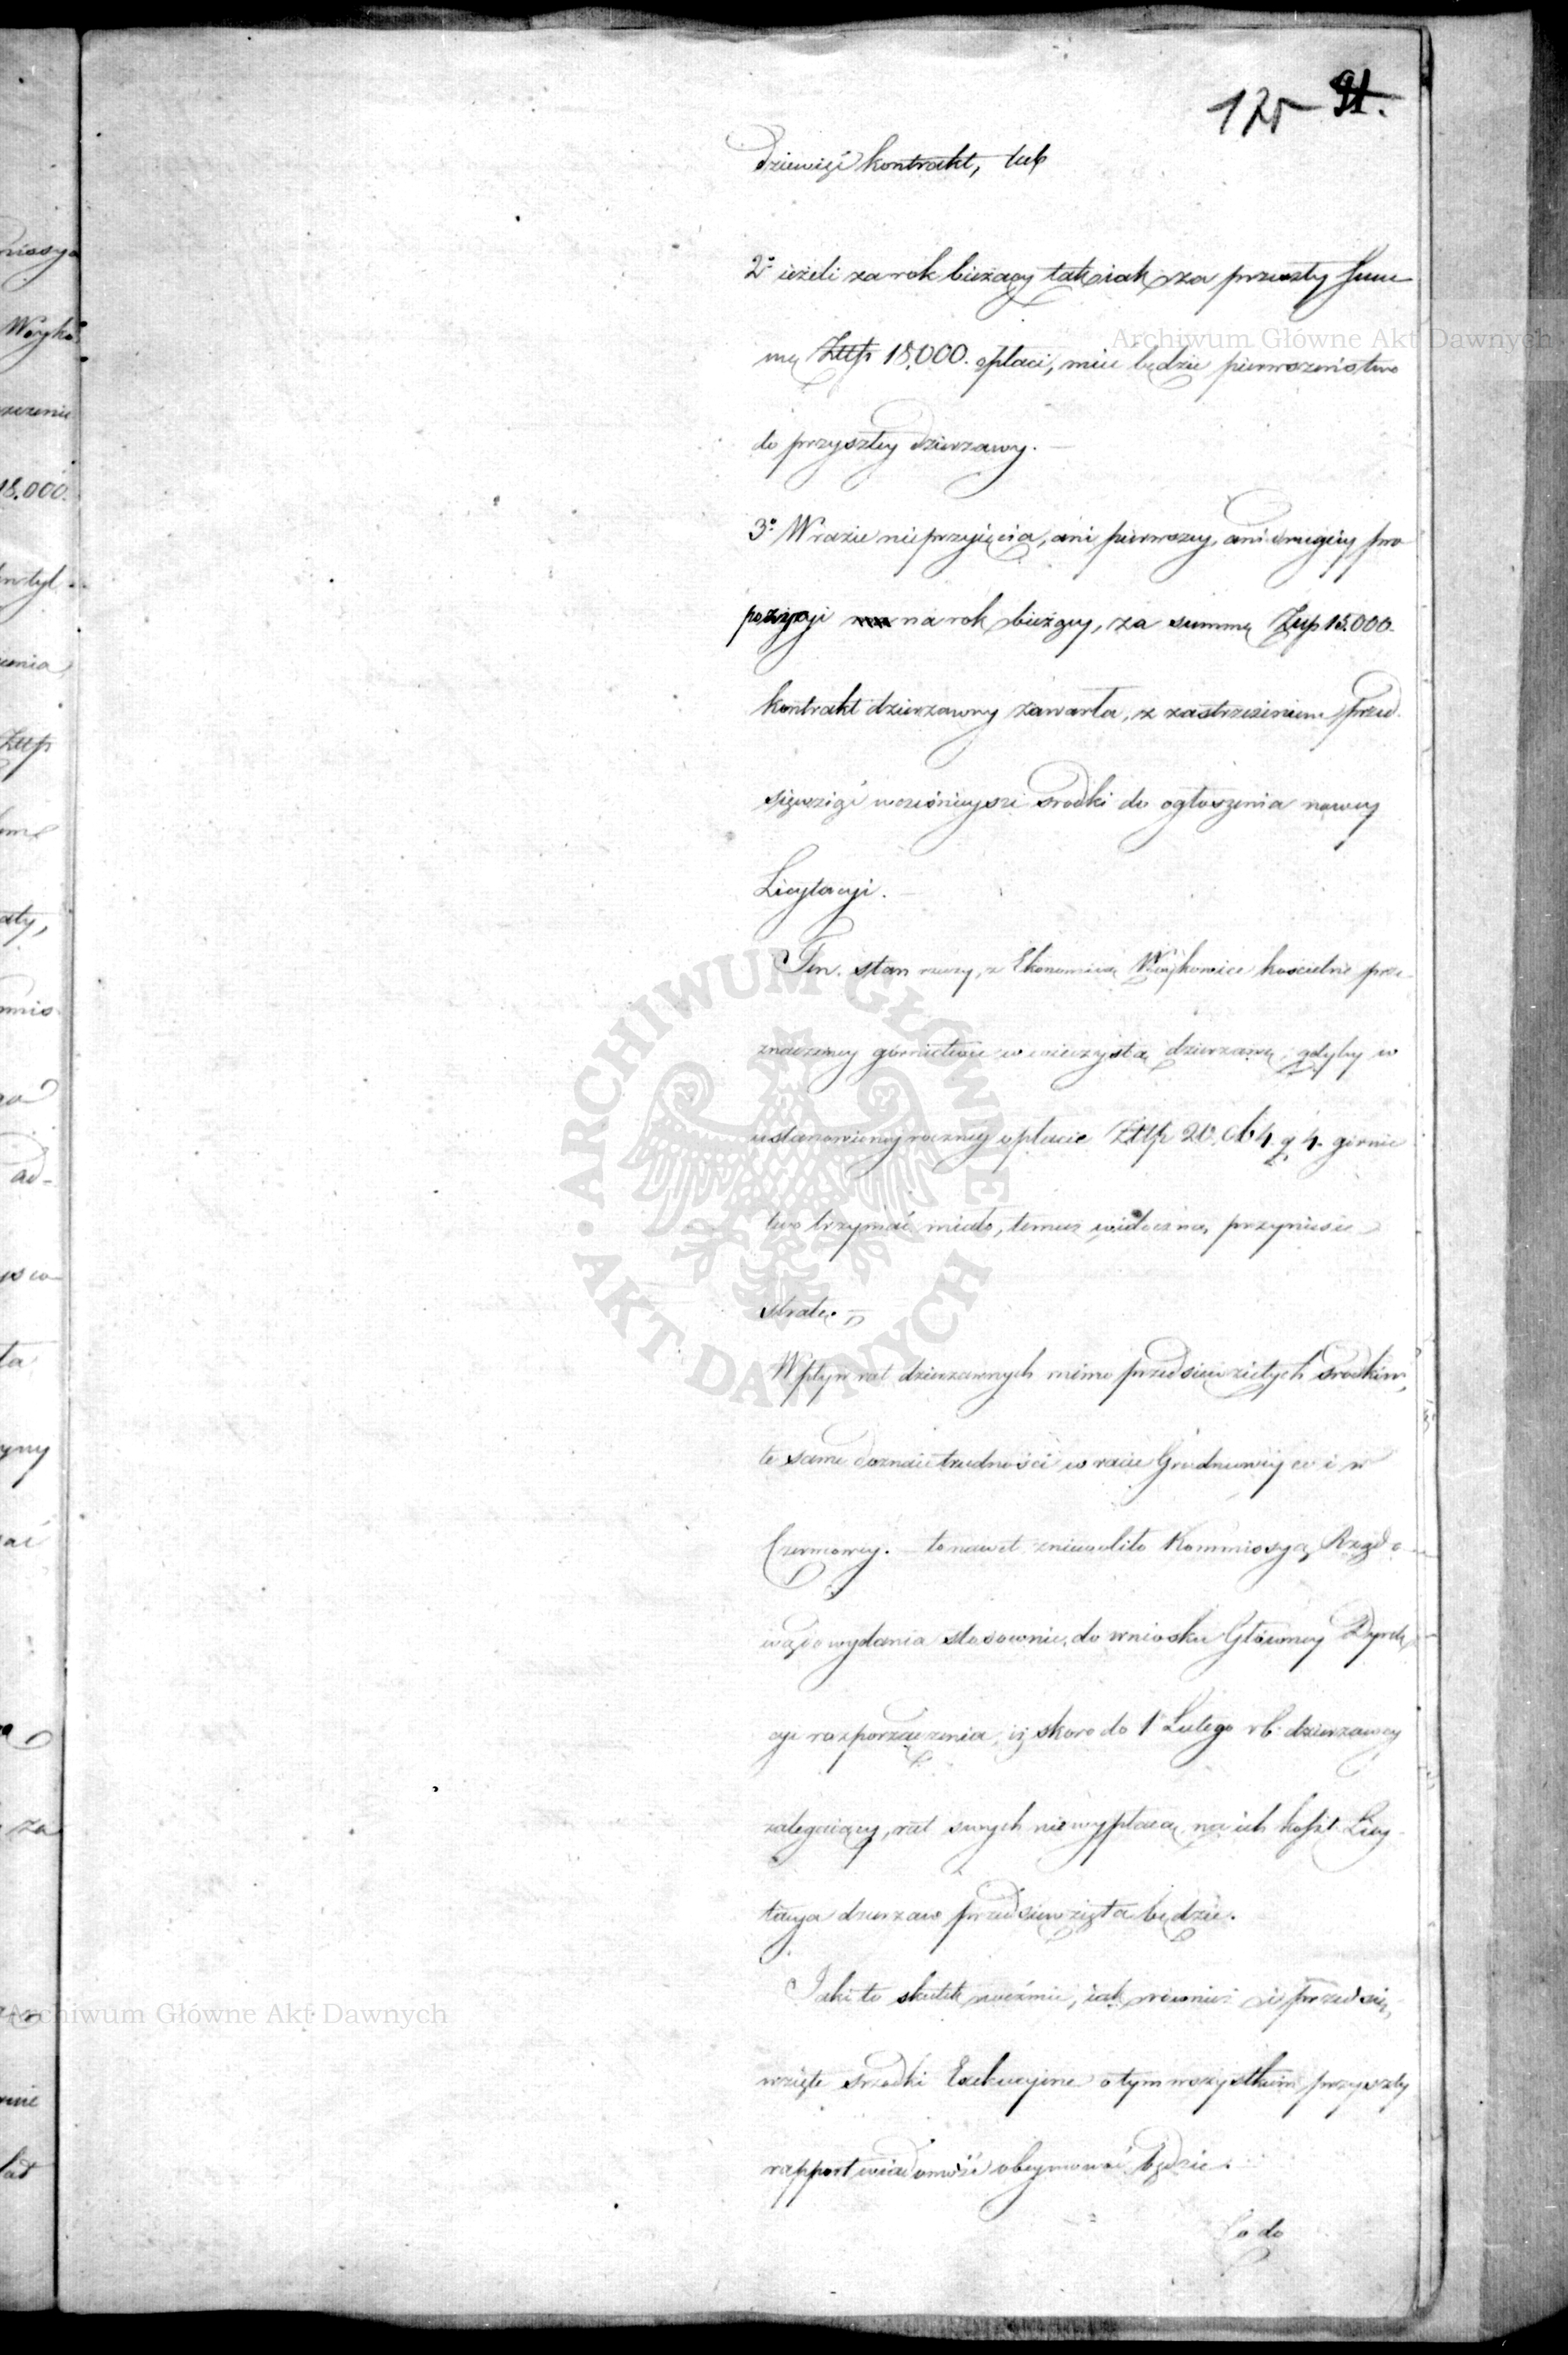 125 91.
dziewięć kontrakt, lub
2° ieżeli za rok bieżący tak iak za przeszły Sum
mę Złłp 18,000. opłaci, mieć będzie pierwszeństwo
do przyszłey dzierzawy. —
3° W razie nieprzyięcia, ani pierwszey, ani drugiey pro
pozycyi na rok bieżący, za summę Złłp 15.000.
kontrakt dzierzawny zawarła, z zastrzeżeniem przed
sięwziąść wcześnieysze srodki do ogłoszenia nowey
Licytacyi. —
Ten stan rzeczy, z Ekonomią Woykowice kościelne prze-
znaczoney górnictwu w wieczystą dzierzawę, gdyby w
ustanowioney roczney opłacie Złłp 20, 4 g 4. górnic
two trzymać miało, temuż widoczną przyniesie
stratę. —
Wpływ rat dzierzawnych mimo przedsięwziętych srodków,
te same doznaie trudności w racie Grudniowey co i w
Czerwcowey. — to nawet zniewoliło Kommissyą Rządo
wą do wydania stosownie do wniosku Główney Dyrek
cyi rozporządzenia, iż skoro do 1 Lutego r b. dzierzawcy
zalegaiący, rat swych nie wypłacą, na ich koszt Licy
tacya dzierzaw przedsięwzięta będzie.
Jaki to skutek weźmie, iak również i przedsię
wzięte srzodki Exekucyine o tym wszystkim przyszły
rapport wiadomość obeymować będzie.
Co do
Archiwum Główne Akt Dawnych
ARCHIWUM GŁÓWNE • AKT DAWNYCH •
Archiwum Główne Akt Dawnych